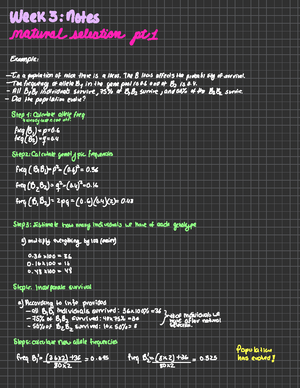 Week 3: Notes
natural selection pt. 1
Example:
- In a population of mice there is a locus. The B locus affects the probability of survival.
- The frequency of allele B₁ in the gene pool is 0.6 and of B₂ is 0.4.
- All B₁B₁ individuals survive, 75% of B₁B₂ survive, and 50% of the B₂B₂ survive.
- Did the population evolve?
Step 1: Calculate allele freq
freq(B₁) = p = 0.6
freq(B₂) = q = 0.4
Step 2: Calculate genotypic frequencies
freq (B₁B₁) = p² = (0.6)² = 0.36
freq (B₂B₂) = q² = (0.4)² = 0.16
freq (B₁B₂) = 2pq = (0.6)(0.4)(2) = 0.48
Step 3: Estimate how many individuals we have of each genotype
a) multiply everything by 100 (mice)
0.36 x 100 = 36
0.16 x 100 = 16
0.48 x 100 = 48
Step 4: Incorporate survival
a) According to info provided
- all B₁B₁ individuals survived: 36 x 100% = 36
- 75% of B₁B₂ survived: 48 x 75% = 36
- 50% of B₂B₂ survived: 16 x 50% = 8
# of individuals we have after natural selection
Step 5: calculate new allele frequencies
freq B₁ = (36x2) + 36 / 80x2 = 0.675
freq B₂ = (8x2) + 36 / 80x2 = 0.325
Population has evolved!